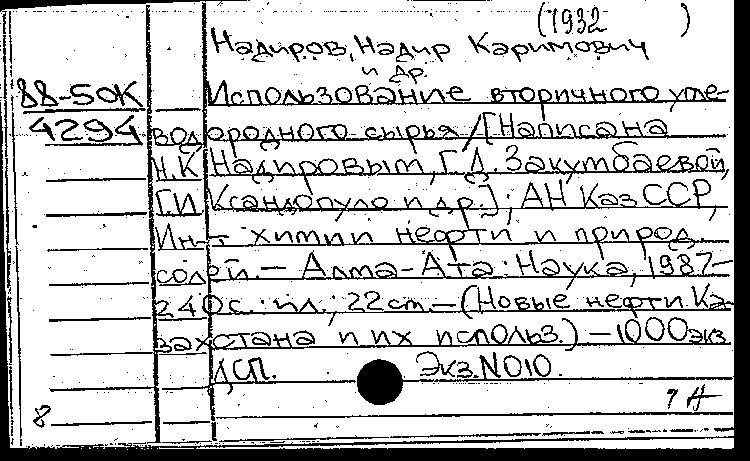 (1932 )
Надиров, Надир Каримович
и др.
88-50К Использование вторичного угле-
4294 водородного сырья / [Написана
Н.К Надировым, Г.Д. Закумбаевой,
Г.И Ксандопуло и др.]; АН КазССР,
Ин-т химии нефти и природ.
солей. – Алма-Ата: Наука, 1987–
240с.: ил.; 22 cm. – (Новые нефти Ка-
захстана и их использ.) – 1000 экз
ДСП. Экз. N010.
8